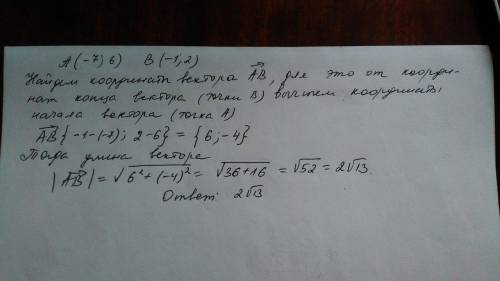 A(-7; 6) B(-1; 2)
Найдем координаты вектора AB, для это от коорди-
нат конца вектора (точки B) вычтем координаты
начала вектора (точка A)
AB{-1-(-7); 2-6} = {6; -4}
Тогда длина вектора
|AB| = √6²+(-4)² = √36+16 = √52 = 2√13.
Ответ: 2√13